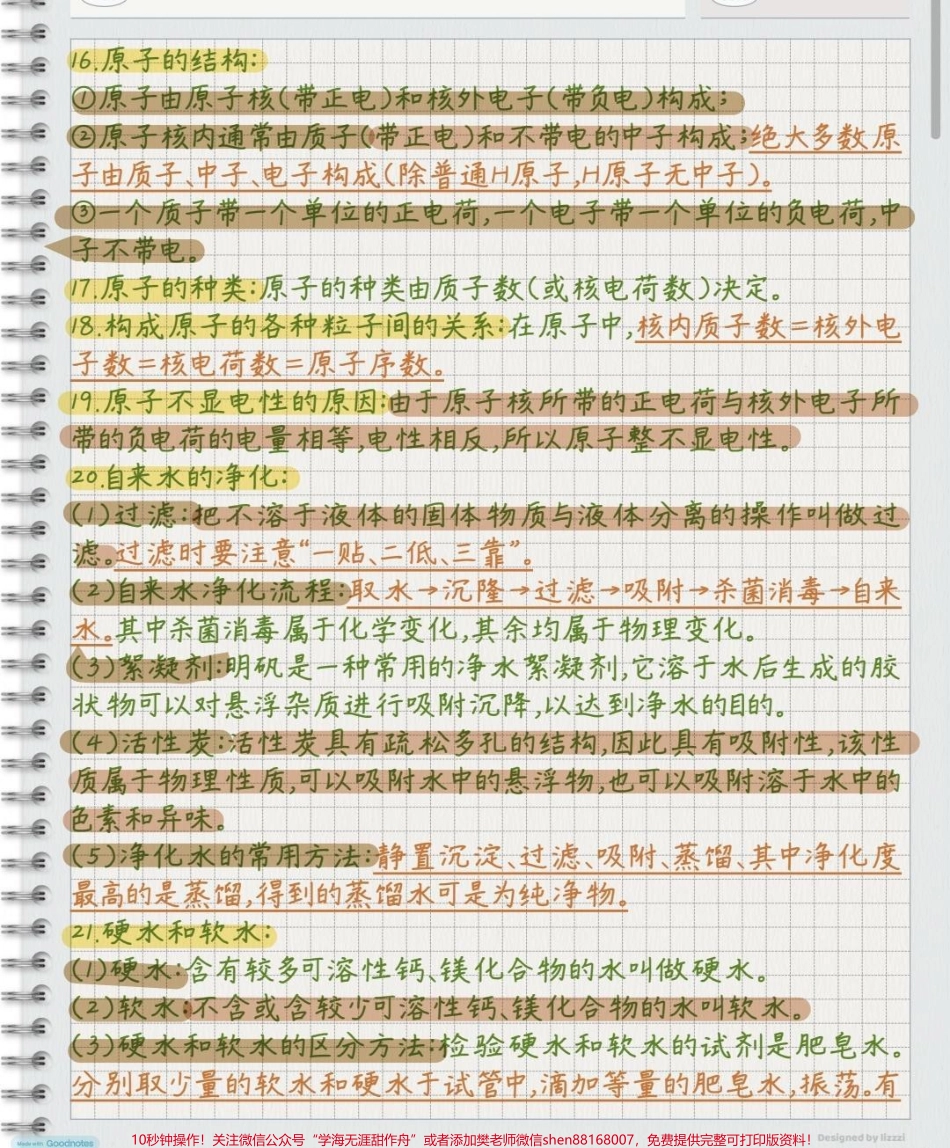 16.原子的结构:
①原子由原子核(带正电)和核外电子(带负电)构成;
②原子核内通常由质子(带正电)和不带电的中子构成;绝大多数原
子由质子、中子、电子构成(除普通H原子,H原子无中子)。
③一个质子带一个单位的正电荷,一个电子带一个单位的负电荷,中
子不带电。
17.原子的种类:原子的种类由质子数(或核电荷数)决定。
18.构成原子的各种粒子间的关系:在原子中,核内质子数=核外电
子数=核电荷数=原子序数。
19.原子不显电性的原因:由于原子核所带的正电荷与核外电子所
带的负电荷的电量相等,电性相反,所以原子整不显电性。
20.自来水的净化:
(1)过滤:把不溶于液体的固体物质与液体分离的操作叫做过
滤。过滤时要注意“一贴、二低、三靠”。
(2)自来水净化流程:取水→沉隆→过滤→吸附→杀菌消毒→自来
水。其中杀菌消毒属于化学变化,其余均属于物理变化。
(3)絮凝剂:明矾是一种常用的净水絮凝剂,它溶于水后生成的胶
状物可以对悬浮杂质进行吸附沉降,以达到净水的目的。
(4)活性炭:活性炭具有疏松多孔的结构,因此具有吸附性,该性
质属于物理性质,可以吸附水中的悬浮物,也可以吸附溶于水中的
色素和异味。
(5)净化水的常用方法:静置沉淀、过滤、吸附、蒸馏、其中净化度
最高的是蒸馏,得到的蒸馏水可是为纯净物。
21.硬水和软水:
(1)硬水:含有较多可溶性钙、镁化合物的水叫做硬水。
(2)软水:不含或含较少可溶性钙、镁化合物的水叫软水。
(3)硬水和软水的区分方法:检验硬水和软水的试剂是肥皂水。
分别取少量的软水和硬水于试管中,滴加等量的肥皂水,振荡。有
Made with Goodnotes
10秒钟操作！关注微信公众号“学海无涯甜作舟”或者添加樊老师微信shen88168007，免费提供完整可打印版资料！
Designed by lizzzi